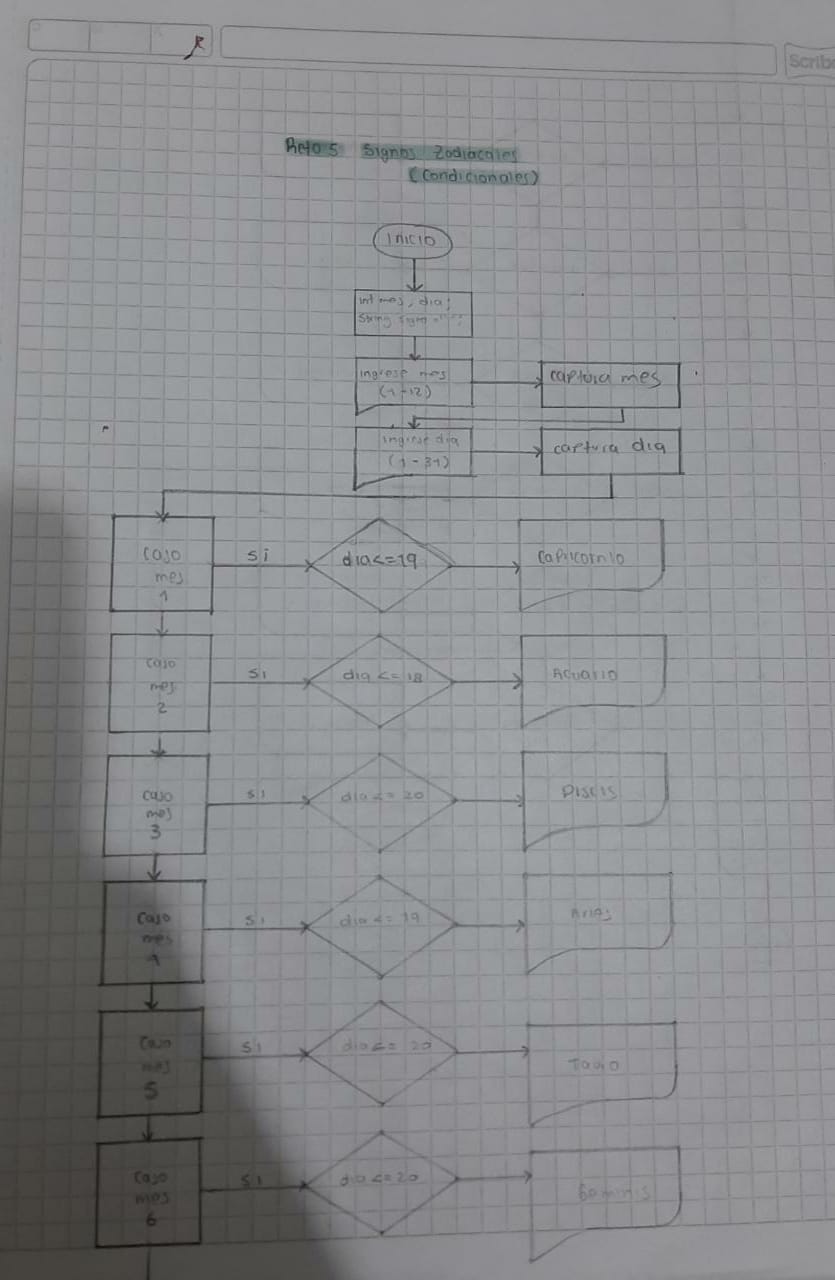 Scribe
Reto 5 Signos Zodiacales
(Condicionales)
Inicio
int mes, dia;
String signo = " ";
ingrese mes
(1-12)
captura mes
ingrese dia
(1-31)
captura dia
caso
mes
1
si
dia<=19
Capricornio
caso
mes
2
si
dia <= 18
Acuario
caso
mes
3
si
dia <= 20
Piscis
caso
mes
si
dia <= 19
Aries
caso
mes
5
si
dia <= 20
Tauro
caso
mes
6
si
dia <=20
Geminis